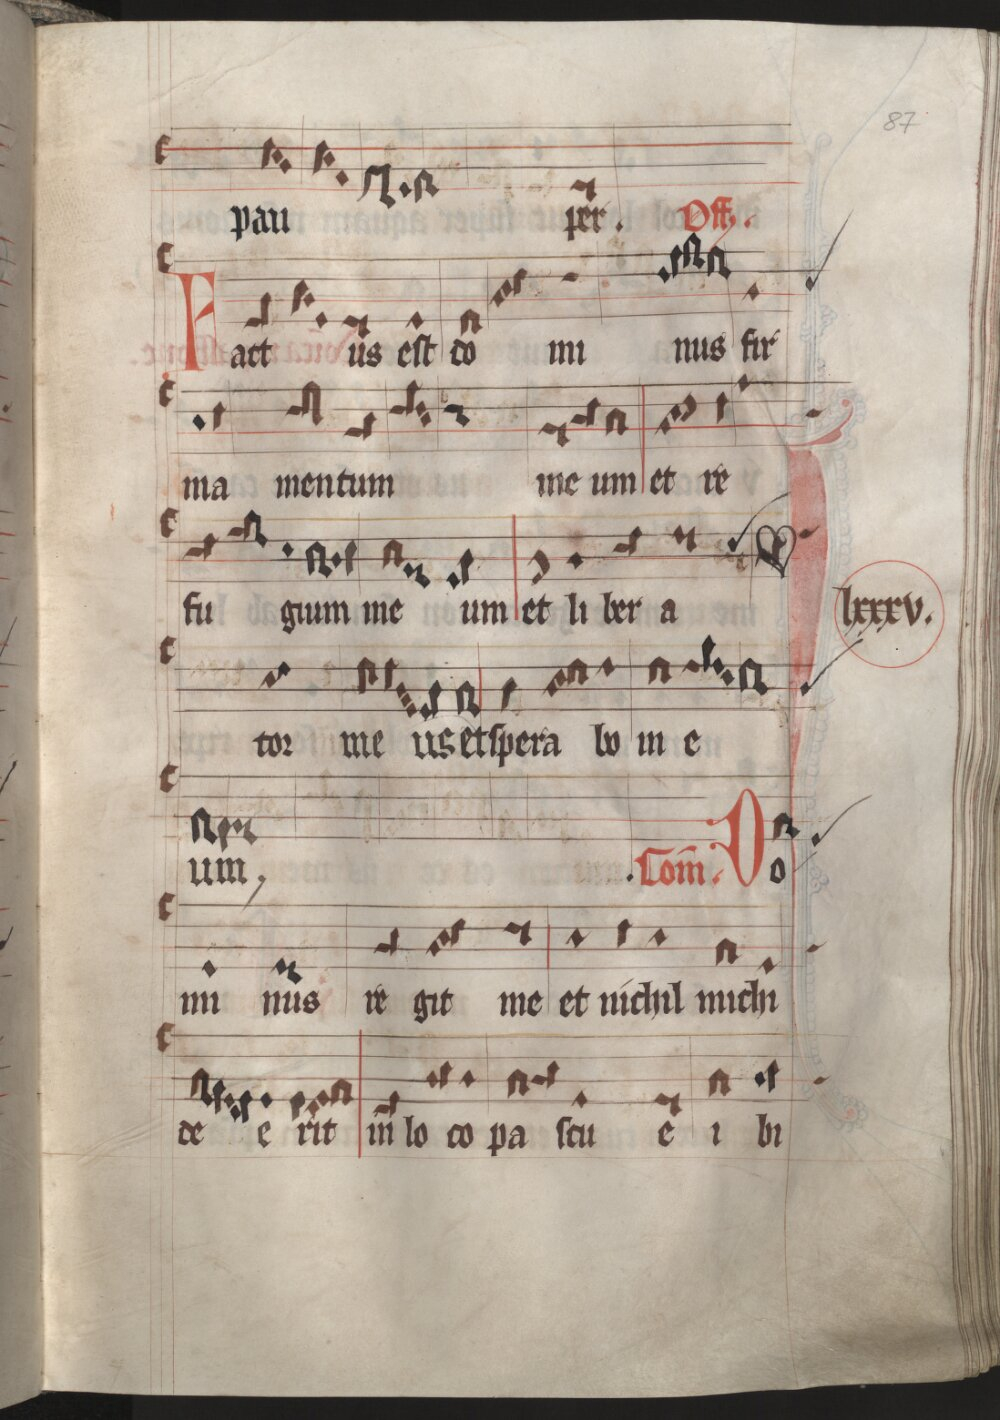 87
pau per. Off.
Fact us est do mi nus fir
ma mentum me um et re
fu gium me um et li ber a
lxxxv.
tor me us et spera bo in e
um, .Com̄. Do
mi nus re git me et nichil michi
de e rit in lo co pa scu e i bi